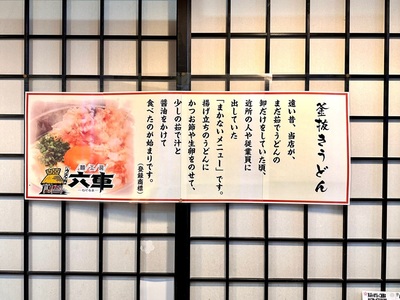 釜抜きうどん
遠い昔、当店が、
まだ茹でうどんの
卸だけをしていた頃、
近所の人や従業員に
出していた
「まかないメニュー」です。
揚げ立てのうどんに
かつお節や生卵をのせて、
少しの茹で汁と
醤油をかけて
食べたのが始まりです。
(登録商標)
六車